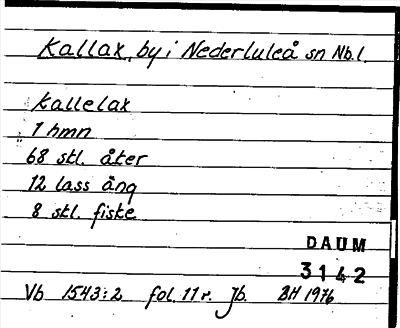 Kallax, by i Nederluleå sn Nb.l.
Kallelax
1 hmn
68 stl. åker
12 lass äng
8 stl. fiske
DAUM
3142
Vb 1543:2 fol. 11 r. Jb. BH 1976